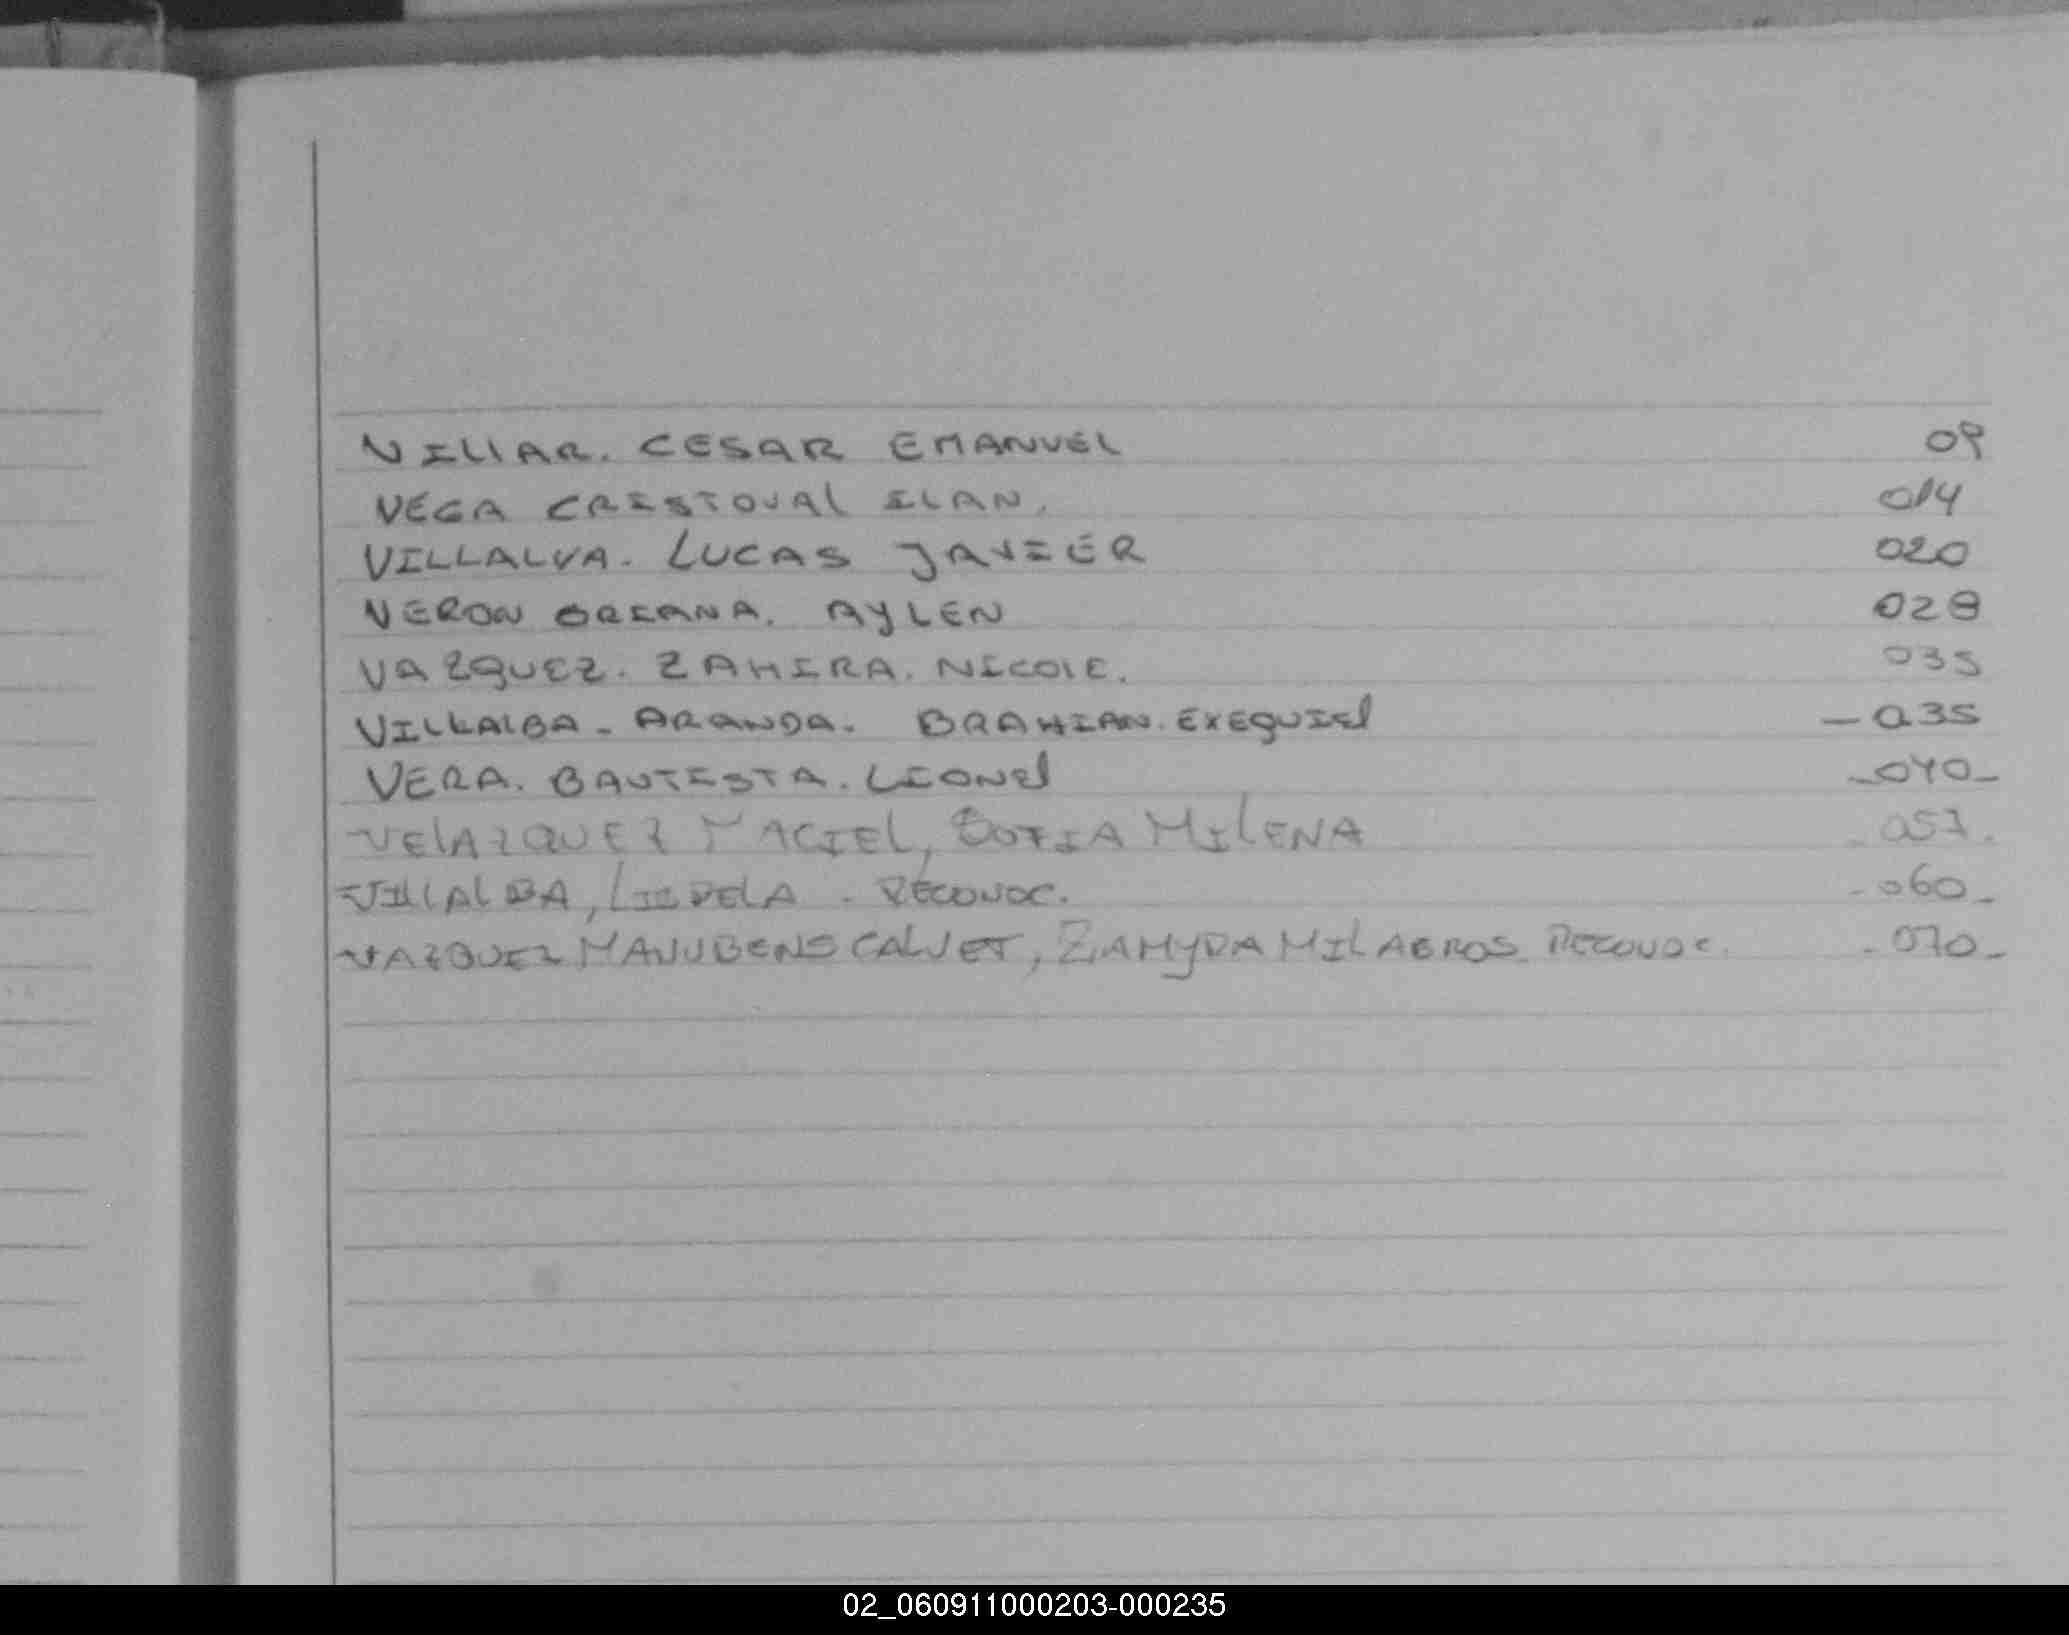 VILLAR. CESAR EMANUEL 09
VEGA CRISTOVAL ILAN. 014
VILLALVA. LUCAS JAVIER 020
VERON ORIANA. AYLEN 028
VAZQUEZ. ZAHIRA. NICOLE. 035
VILLALBA - ARANDA. BRAHIAN. EXEQUIEL - 035
VERA. BAUTISTA. LIONEL - 040 -
VELAZQUEZ MACIEL, SOFIA MILENA - 057.
VILLALBA, - RECONOC. - 060 -
VAZQUEZ CALVET, ZAHYRA MILAGROS RECONOC. - 070 -
02_060911000203-000235